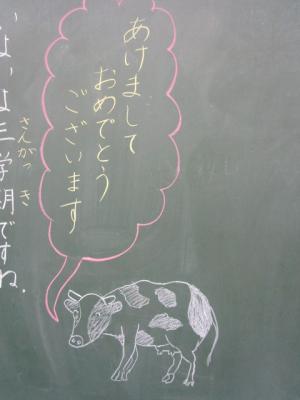 あけまして
おめでとう
ございます
いよいよ三学期ですね.
さんがっき